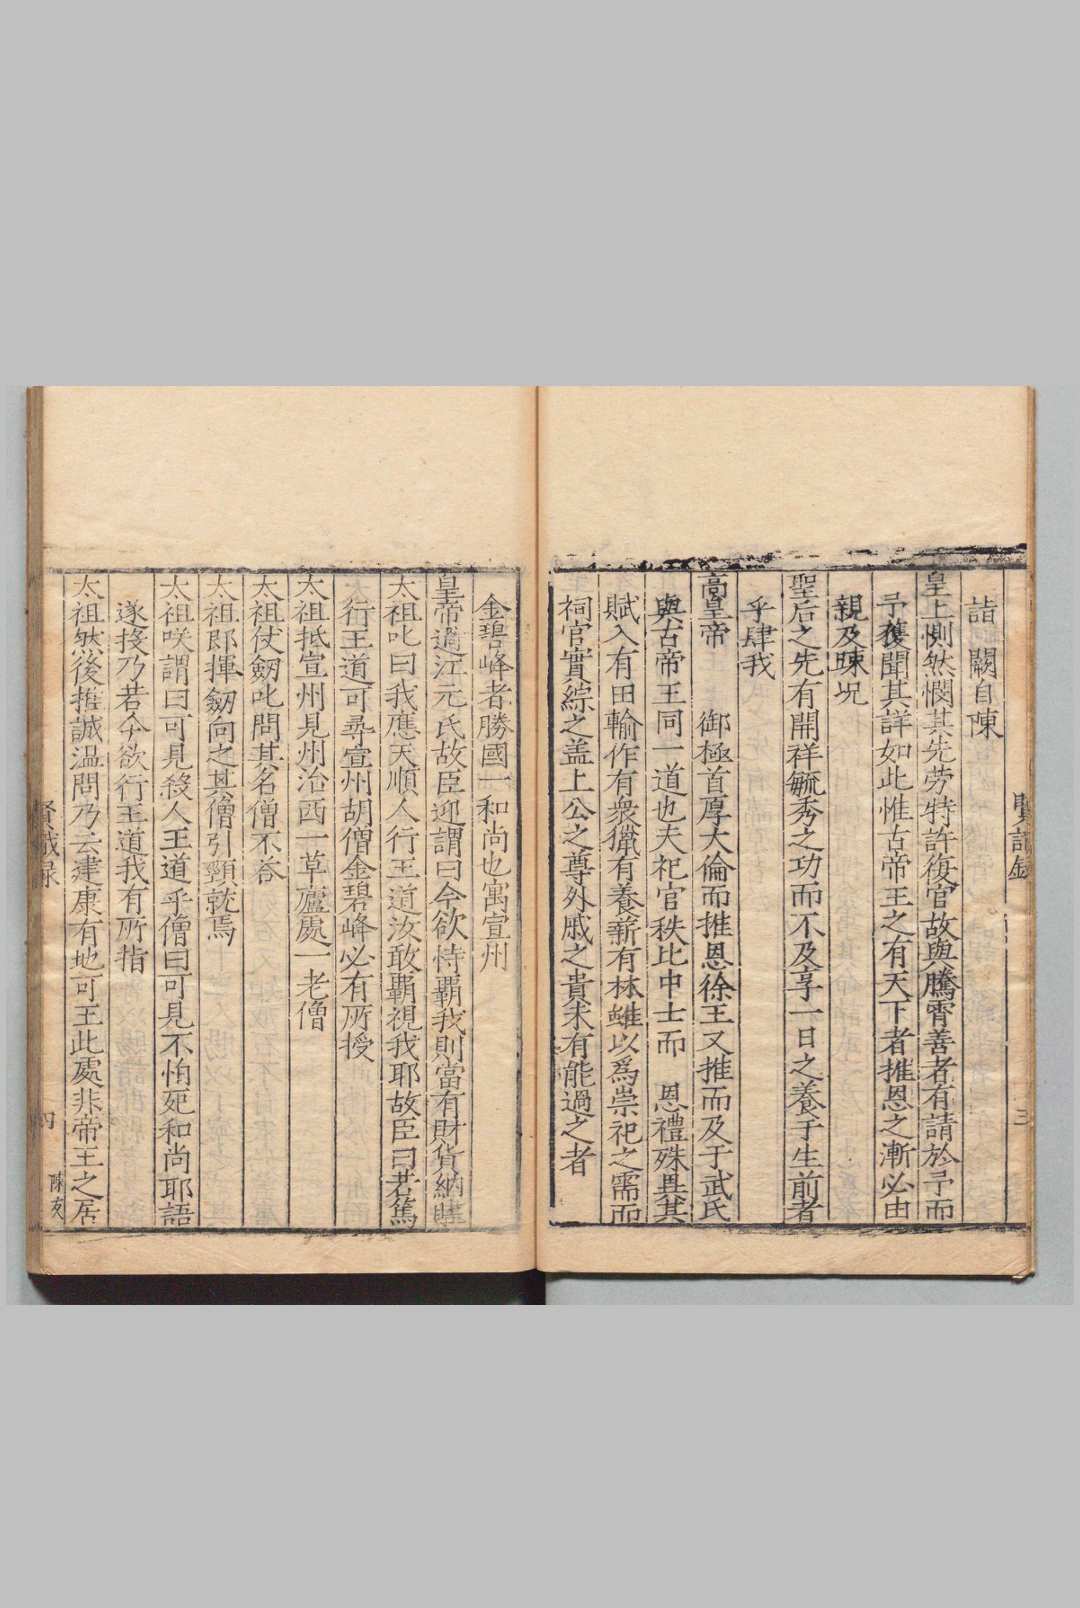 詣 闕自陳
皇上惻然憫其先劳特許復官故與騰霄善者有請於予而
予獲聞其詳如此惟古帝王之有天下者推恩之漸必由
親及踈况
聖后之先有開祥毓秀之功而不及享一日之養于生前者
乎肆我
高皇帝 御極首厚大倫而推恩徐王又推而及于武氏
與古帝王同一道也夫祀官秩比中士而 恩禮殊異其
賦入有田輸作有衆獵有養薪有林雖以爲崇祀之需而
祠官實綜之盖上公之尊外戚之貴未有能過之者
三
金碧峰者勝國一和尚也寓宣州
皇帝過江元氏故臣迎謂曰今欲恃霸我則當有財貨納
太祖叱曰我應天順人行王道汝敢霸視我耶故臣曰若篤
行王道可尋宣州胡僧金碧峰必有所授
太祖抵宣州見州治西一草廬處一老僧
太祖仗劒叱問其名僧不荅
太祖郎揮劒向之其僧引頸就焉
太祖咲謂曰可見殺人王道乎僧曰可見不怕死和尚耶語
遂投乃若今欲行王道我有所指
太祖然後推誠温問乃云建康有地可王此處非帝王之居
賢識録
四
陳友